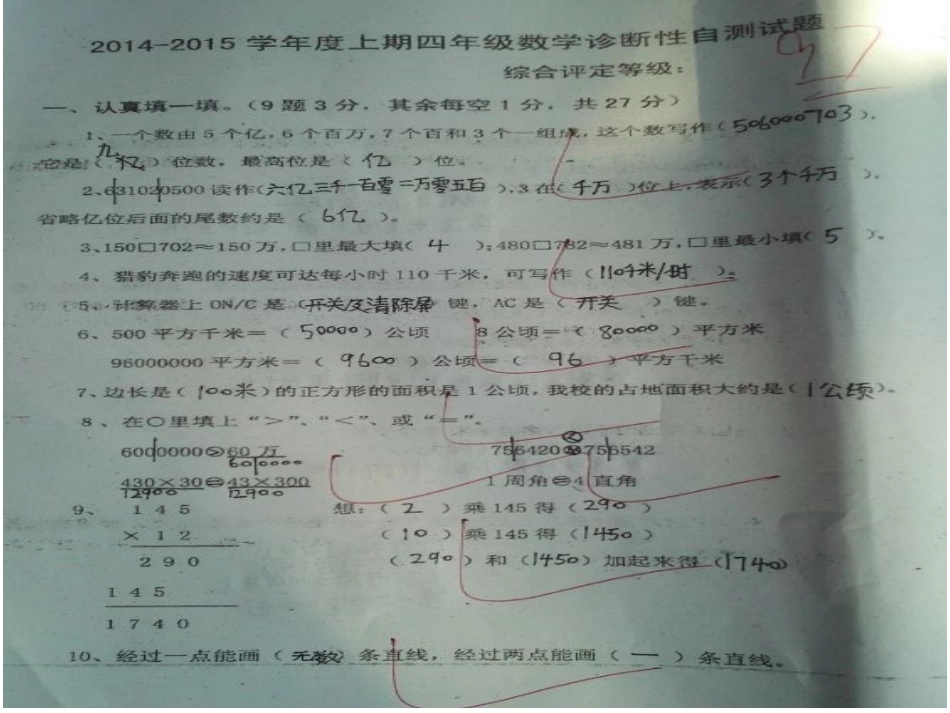 2014-2015 学年度上期四年级数学诊断性自测试题
97
综合评定等级：
一、认真填一填。（9题3分，其余每空1分，共27分）
1、一个数由5个亿，6个百万，7个百和3个一组成，这个数写作（506000703），
它是（九）位数，最高位是（亿）位。
2、631020500读作（六亿三千一百零二万零五百），3在（千万）位上，表示（3个千万），
省略亿位后面的尾数约是（6亿）。
3、150□702≈150万，□里最大填（4）；480□782≈481万，□里最小填（5）。
4、猎豹奔跑的速度可达每小时110千米，可写作（110千米/时）。
5、计算器上ON/C是（开关及清除屏）键，AC是（开关）键。
6、500平方千米＝（50000）公顷 8公顷＝（80000）平方米
96000000平方米＝（9600）公顷＝（96）平方千米
7、边长是（100米）的正方形的面积是1公顷，我校的占地面积大约是（1公顷）。
8、在○里填上“＞”、“＜”、或“＝”。
6000000＞60万 756420＜756542
600000
430×30＝43×300 1周角＝4直角
12900 12900
9、 145 想：（2）乘145得（290）
×12 （10）乘145得（1450）
290 （290）和（1450）加起来得（1740）
145
1740
10、经过一点能画（无数）条直线，经过两点能画（一）条直线。